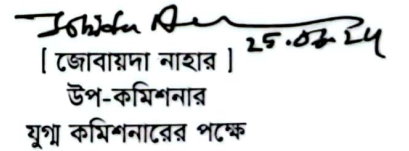 25.08.24
[ জোবায়দা নাহার ]
উপ-কমিশনার
যুগ্ম কমিশনারের পক্ষে